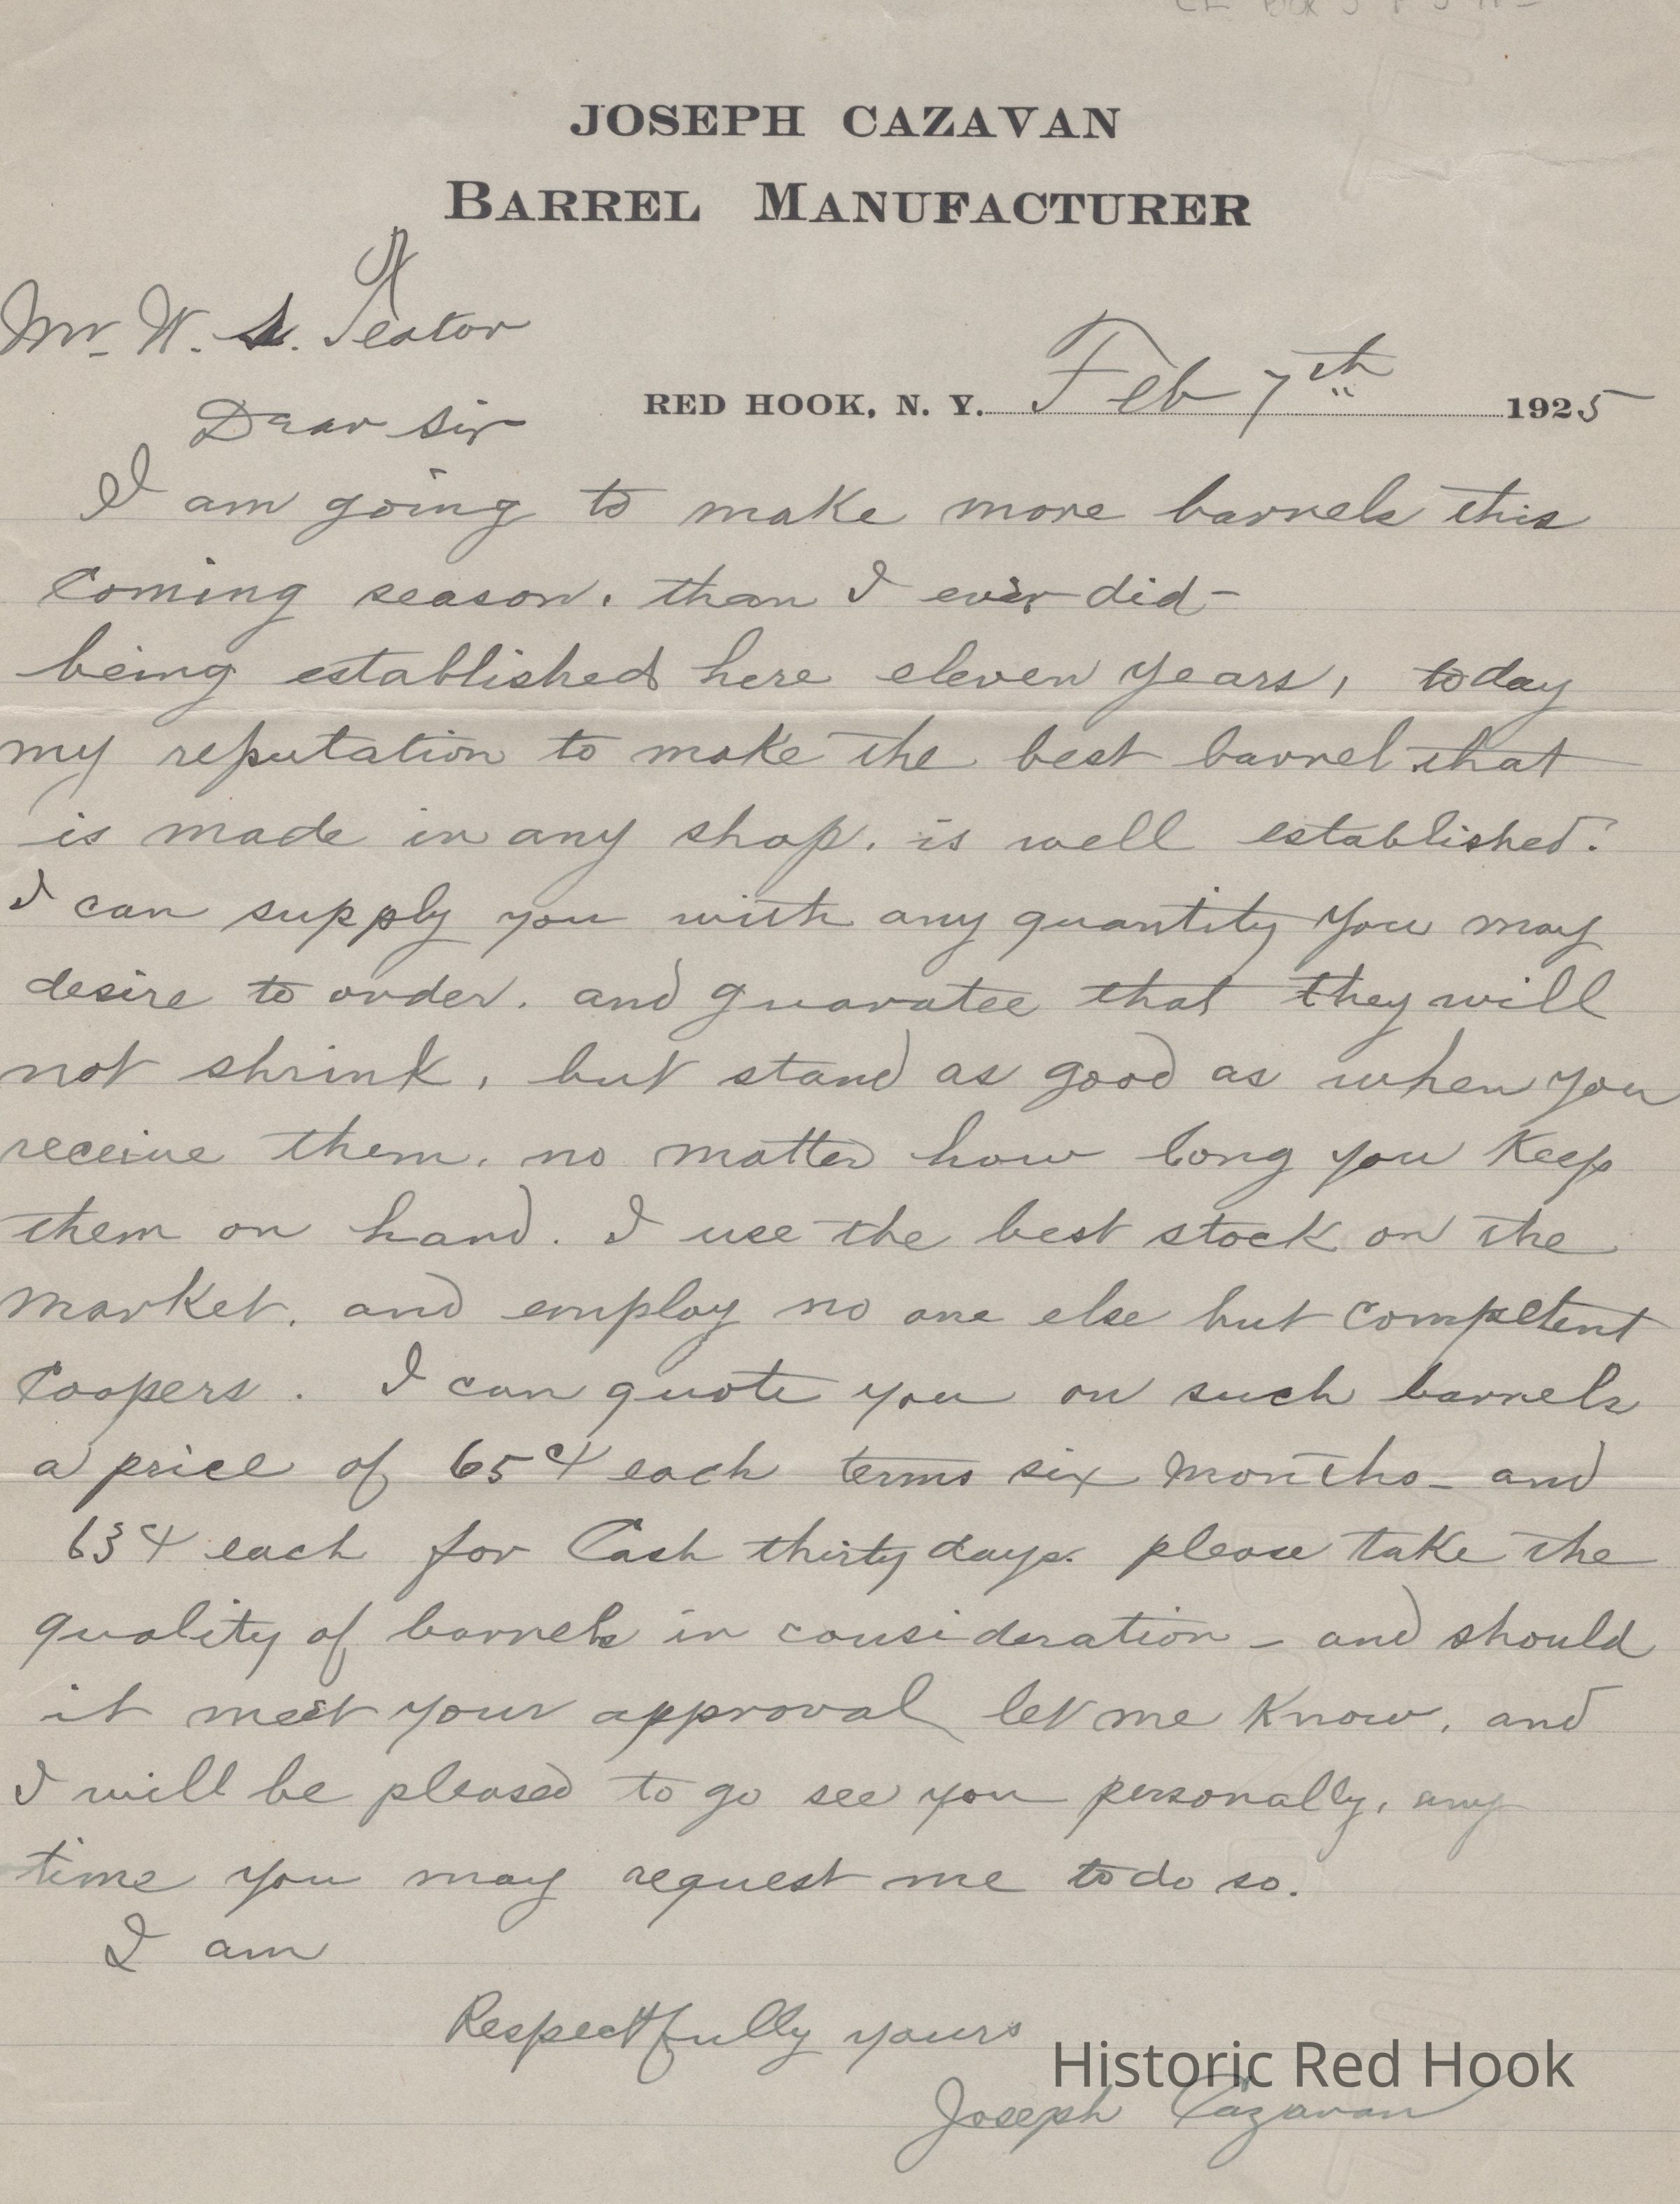 JOSEPH CAZAVAN
BARREL MANUFACTURER
Mr. W. S. Teator
RED HOOK, N. Y. Feb 7th 1925
Dear Sir
I am going to make more barrels this
Coming season. than I ever did-
being established here eleven years, today
my reputation to make the best barrel that
is made in any shop. is well established.
I can supply you with any quantity you may
desire to order. and guaratee that they will
not shrink, but stand as good as when you
receive them. no matter how long you Keep
them on hand. I use the best stock on the
market. and employ no one else but Competent
Coopers. I can quote you on such barrels
a price of 65c/ each terms six months - and
63c/ each for Cash thirty days. please take the
quality of barrels in consideration - and should
it meet your approval let me Know, and
I will be pleased to go see you personally, any
time you may request me to do so.
I am
Respectfully yours
Historic Red Hook
Joseph Cazavan